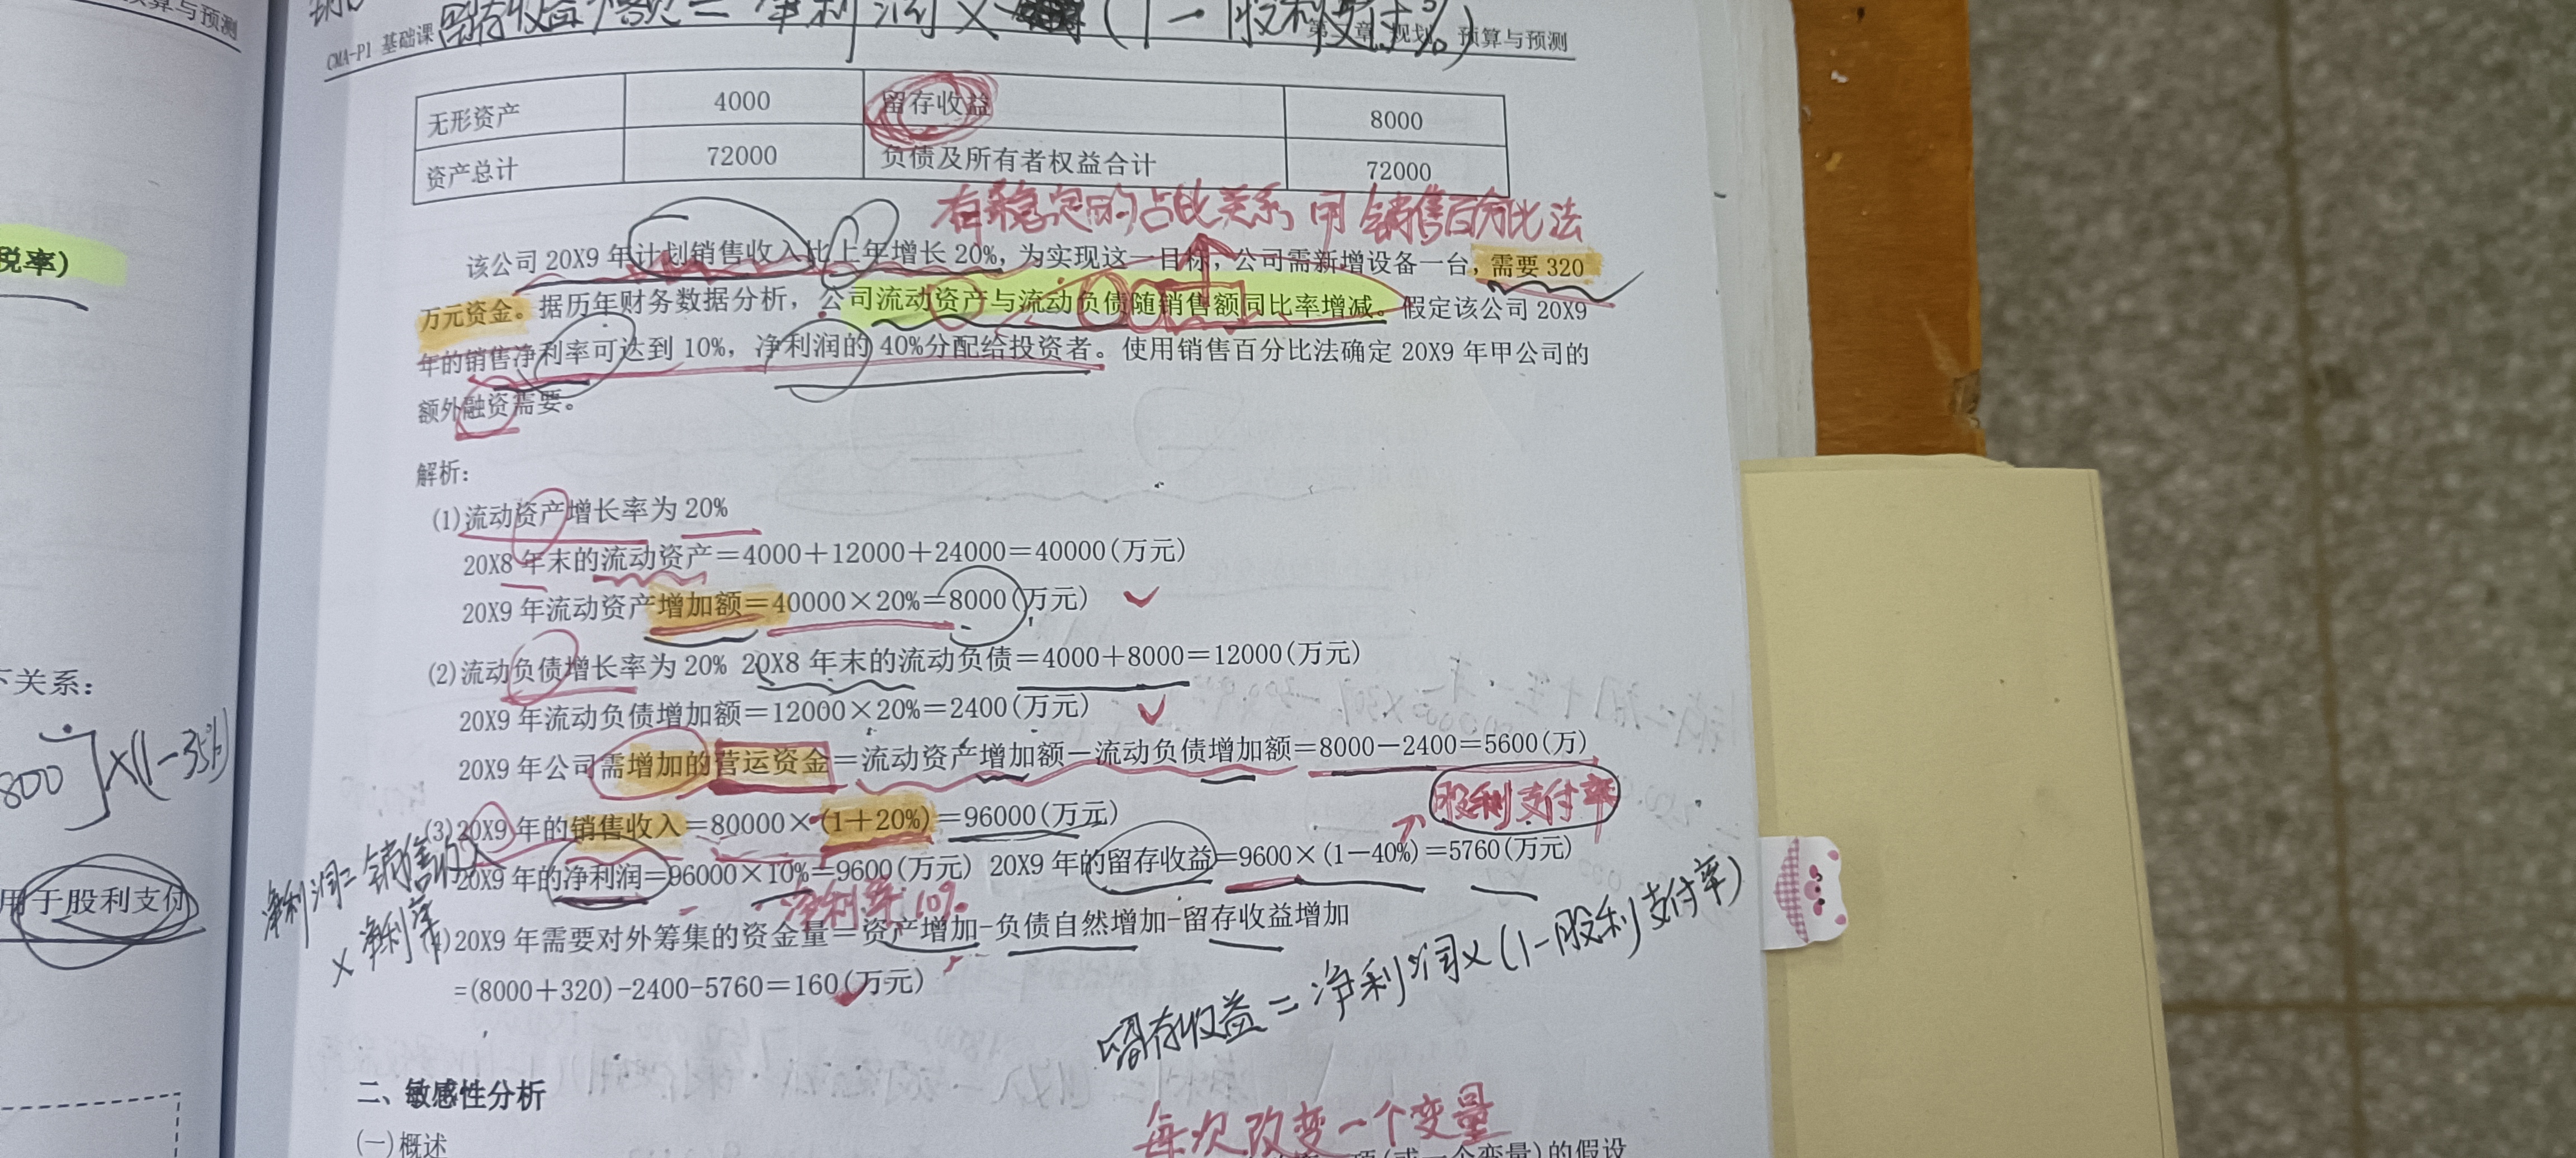 算与预测
税率)
下关系:
800]×(1-35%)
用于股利支付
留存收益增加=净利润×(1-股利支付%)
CMA-P1 基础课
第二章 规划、预算与预测
无形资产 4000 留存收益 8000
资产总计 72000 负债及所有者权益合计 72000
有稳定的占比关系 用 销售百分比法
该公司 20X9 年计划销售收入比上年增长 20%,为实现这一目标,公司需新增设备一台,需要 320
万元资金。据历年财务数据分析,公司流动资产与流动负债随销售额同比率增减。假定该公司 20X9
年的销售净利率可达到 10%,净利润的 40%分配给投资者。使用销售百分比法确定 20X9 年甲公司的
额外融资需要。
解析:
(1)流动资产增长率为 20%
20X8 年末的流动资产=4000+12000+24000=40000(万元)
20X9 年流动资产增加额=40000×20%=8000(万元)
(2)流动负债增长率为 20% 20X8 年末的流动负债=4000+8000=12000(万元)
20X9 年流动负债增加额=12000×20%=2400(万元)
20X9 年公司需增加的营运资金=流动资产增加额-流动负债增加额=8000-2400=5600(万)
股利支付率
(3)20X9 年的销售收入=80000×(1+20%)=96000(万元)
20X9 年的净利润=96000×10%=9600(万元) 20X9 年的留存收益=9600×(1-40%)=5760(万元)
净利润=销售收入
×净利率
净利率10%
20X9 年需要对外筹集的资金量=资产增加-负债自然增加-留存收益增加
=(8000+320)-2400-5760=160(万元)
留存收益=净利润×(1-股利支付率)
二、敏感性分析
每次改变一个变量
(一)概述
项(或一个变量)的假设